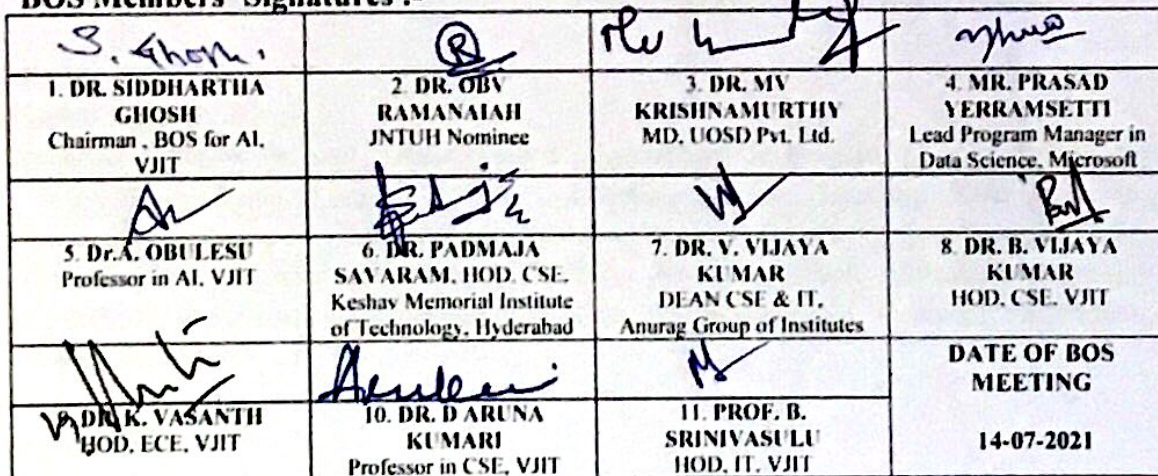 BOS Members' Signatures :-
S. Ghosh.
1. DR. SIDDHARTHA
GHOSH
Chairman , BOS for AI,
VJIT
2. DR. OBV
RAMANAIAH
JNTUH Nominee
3. DR. MV
KRISHNAMURTHY
MD, UOSD Pvt. Ltd.
4. MR. PRASAD
YERRAMSETTI
Lead Program Manager in
Data Science, Microsoft
5. Dr.A. OBULESU
Professor in AI, VJIT
6. DR. PADMAJA
SAVARAM, HOD, CSE,
Keshav Memorial Institute
of Technology, Hyderabad
7. DR. V. VIJAYA
KUMAR
DEAN CSE & IT,
Anurag Group of Institutes
8. DR. B. VIJAYA
KUMAR
HOD, CSE, VJIT
DR. K. VASANTH
HOD, ECE, VJIT
10. DR. D ARUNA
KUMARI
Professor in CSE, VJIT
11. PROF. B.
SRINIVASULU
HOD, IT, VJIT
DATE OF BOS
MEETING
14-07-2021